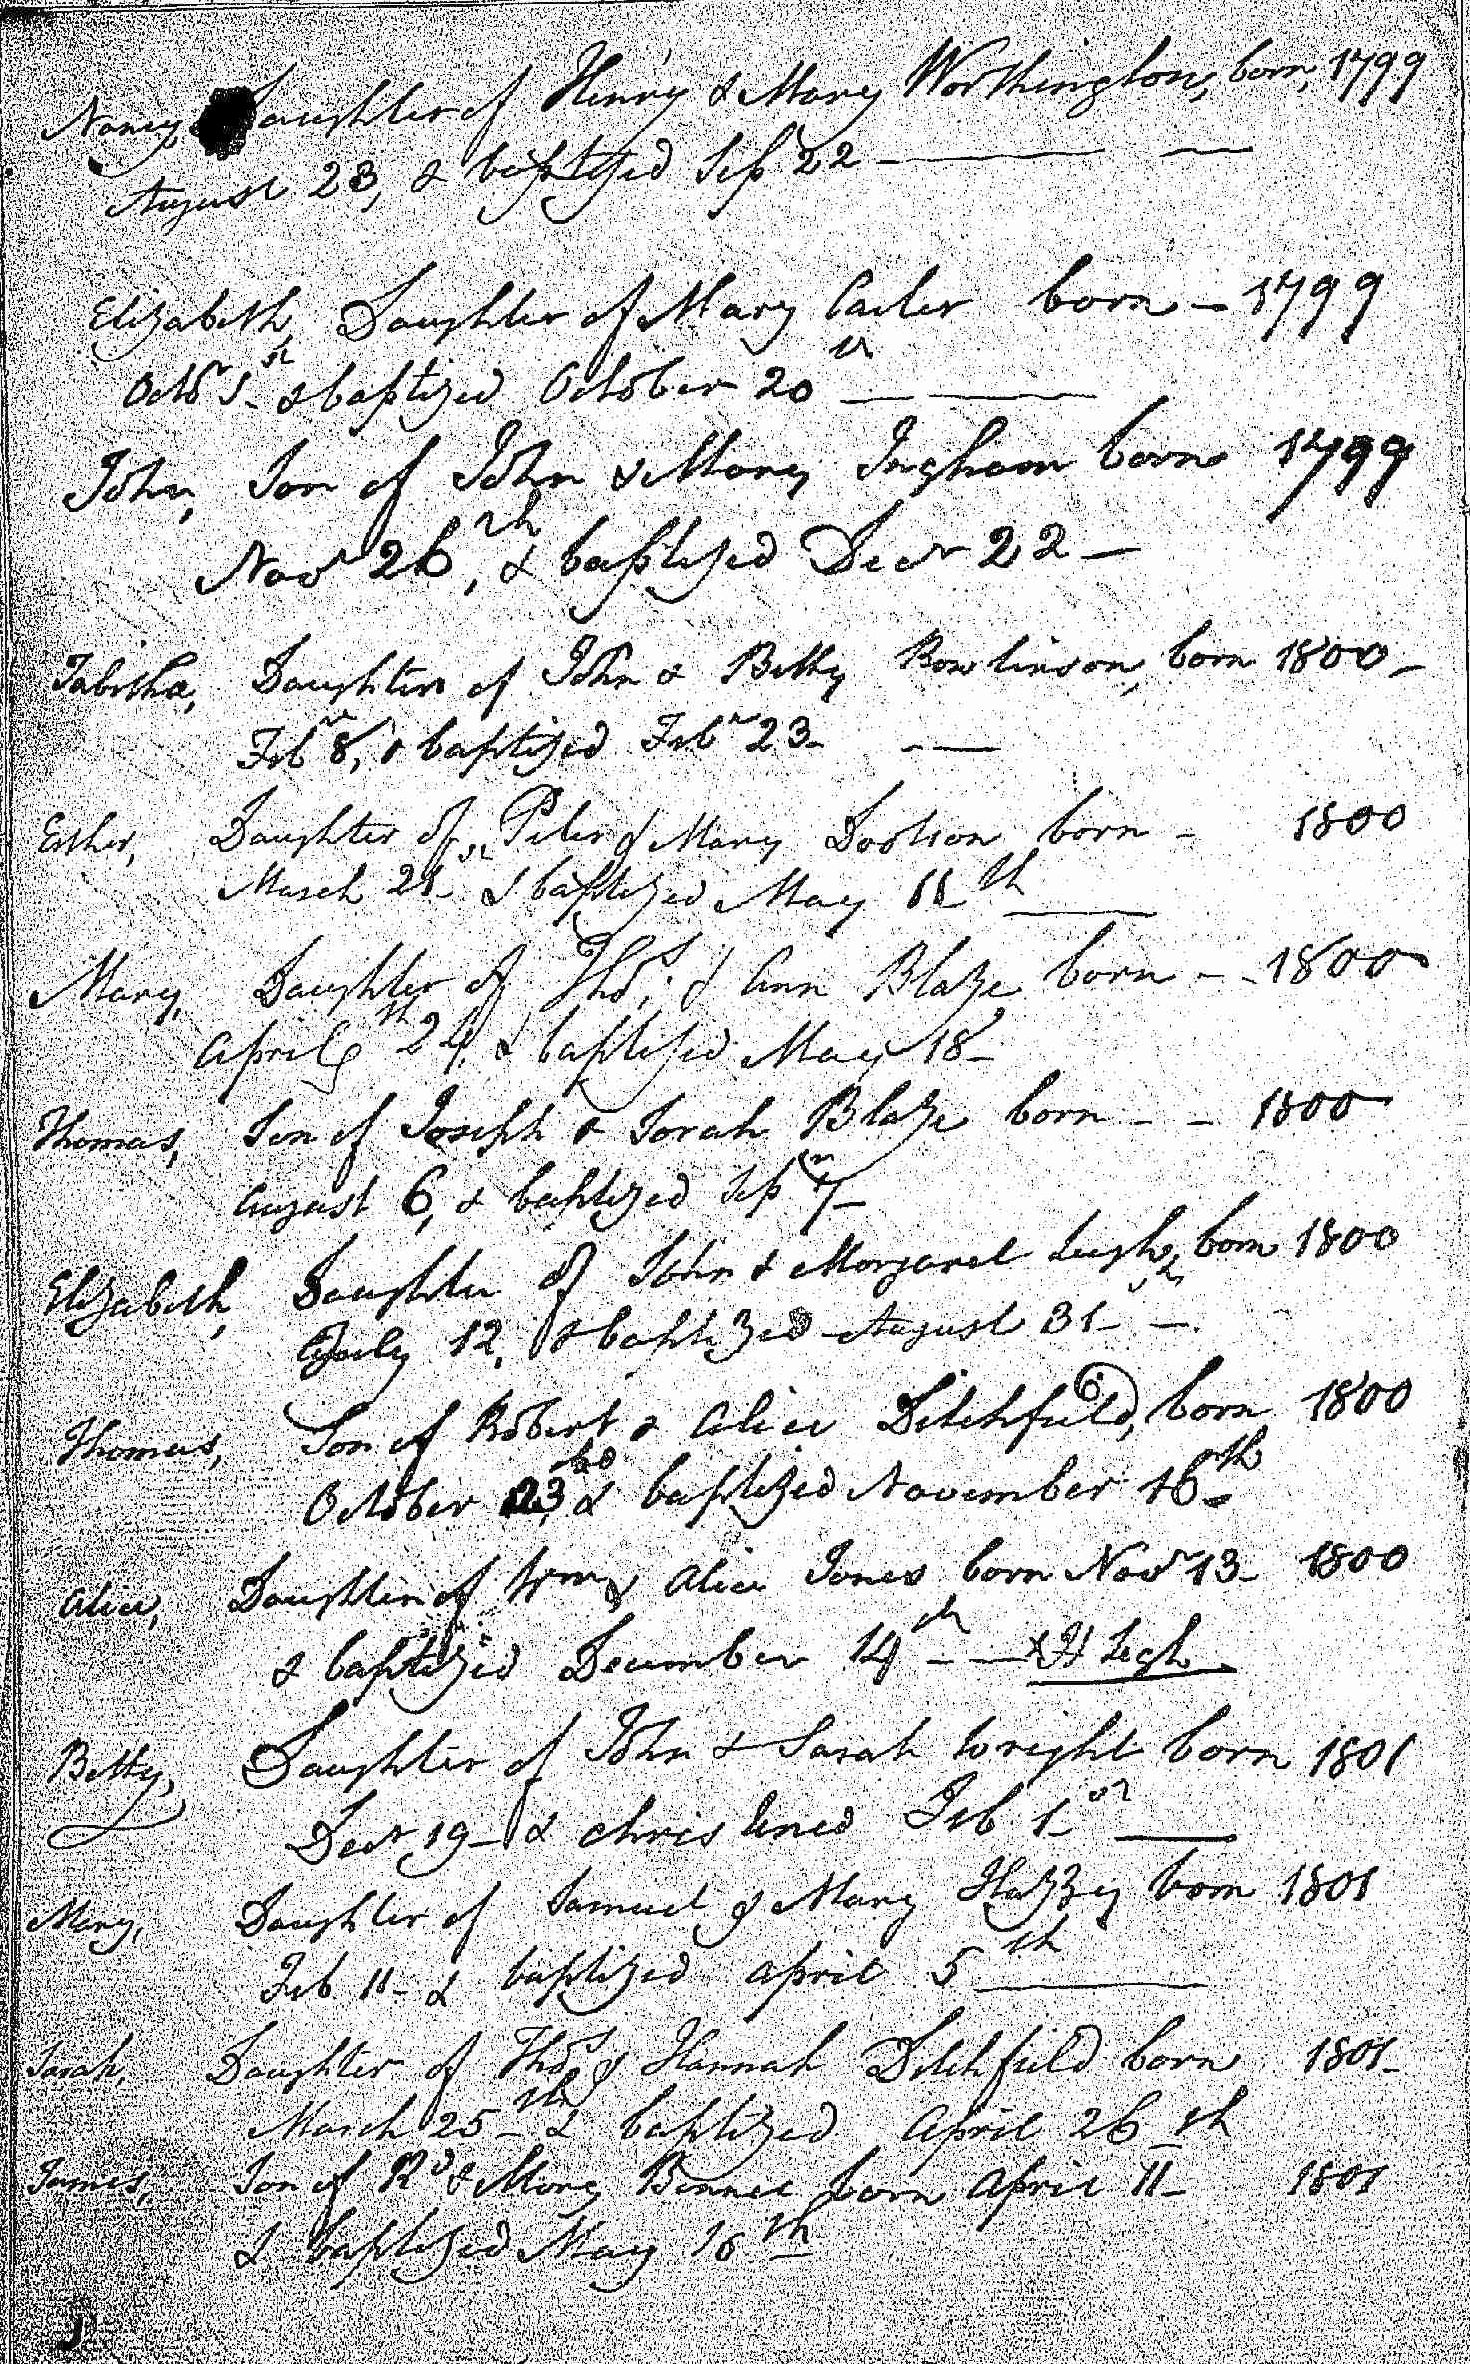 Nancy Daughter of Henry & Mary Worthington, born, 1799
August 23, & baptized Sep 22
Elizabeth, Daughter of Mary Carter born - 1799
Octor 1st & baptized October 20th
John, Son of John & Mary Ingham born 1799
Novr 26th, & baptized Decr 22
Tabitha, Daughter of John & Betty Rowlinson, born 1800
Febr 8, & baptized Febr 23
Esther, Daughter of Peter & Mary Dootson born - 1800
March 21st & baptized May 11th
Mary, Daughter of Thos: & Ann Blaze born - - 1800
April 24th, & baptized May 18
Thomas, Son of Joseph & Sarah Blaze born - - 1800
August 6, & baptized Sepr 7
Elizabeth, Daughter of John & Margaret Leigh, born 1800
July 12, & baptized August 31
Thomas, Son of Robert & Alice Ditchfield, born 1800
October 23 & baptized November 16th
Alice, Daughter of Wm & Alice Jones born Novr 13 - 1800
& baptized December 14th - - x H Legh
Betty, Daughter of John & Sarah Wright born 1801
Decr 19 - & christined Feb 1st
Mary, Daughter of Samuel & Mary Hazzey born 1801
Feb 11 - & baptized April 5th
Sarah, Daughter of Thos & Hannah Ditchfield born 1801
March 25th & baptized April 26th
James, Son of Rd & Mary Bennet born April 11 - 1801
& baptized May 16th